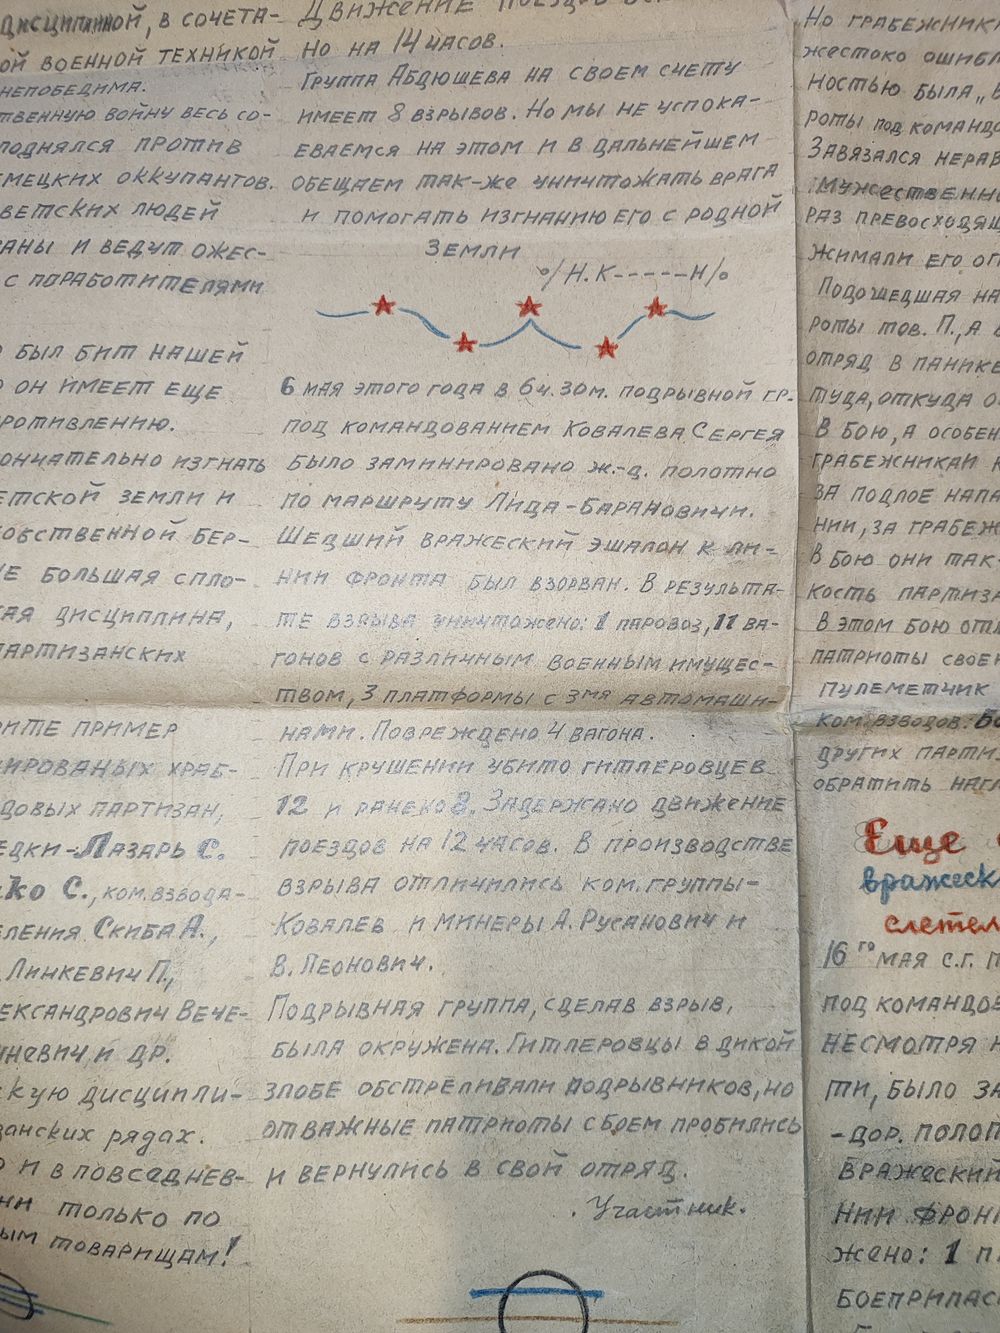 дисциплиной, в сочета-
ой военной техникой
непобедима.
твенную войну весь со-
поднялся против
мецких оккупантов.
ветских людей
аны и ведут ожес-
с поработителями
о был бит нашей
о он имеет еще
ротивлению.
ончательно изгнать
етской земли и
собственной бер-
не большая спло-
кая дисциплина,
партизанских
рите пример
ированых храб-
довых партизан,
едки-Лазарь С.
ко С., ком. взвода-
еления Скиба А.,
Линкевич П.,
ександрович Вече-
невич, и др.
скую дисципли-
занских рядах.
о и в повседнев-
ни только по
ым товарищам!
Движение поездов
но на 14 часов.
Группа Абдюшева на своем счету
имеет 8 взрывов. Но мы не успока-
еваемся на этом и в дальнейшем
обещаем так-же уничтожать врага
и помогать изгнанию его с родной
земли
°/Н.К-----Н/°
6 мая этого года в 6ч. 30м. подрывной гр.
под командованием Ковалева Сергея
было заминировано ж.-д. полотно
по маршруту Лида-Барановичи.
Шедший вражеский эшалон к ли-
нии фронта был взорван. В результа-
те взрыва уничтожено: 1 паровоз, 11 ва-
гонов с различным военным имущес-
твом, 3 платформы с 3мя автомаши-
нами. Повреждено 4 вагона.
При крушении убито гитлеровцев
12 и ранено 8. Задержано движение
поездов на 12 часов. В производстве
взрыва отличились ком. группы-
Ковалев и минеры А. Русанович и
В. Леонович.
Подрывная группа, сделав взрыв,
была окружена. Гитлеровцы в дикой
злобе обстреливали подрывников, но
отважные патриоты с боем пробились
и вернулись в свой отряд.
Участник.
Но грабежники
жестоко ошибл
ностью была „В
роты под командо
Завязался нерав
Мужественно
раз превосходящ
жимали его ог
Подошедшая на
роты тов. П., а в
отряд в панике
туда, откуда о
В бою, а особен
грабежникай к
за подлое напа
нии, за грабеж
В бою они так-
кость партиза
В этом бою отл
патриоты своей
пулеметчик
ком. взводов: Бо
других парти
обратить нагл
Еще
вражеск
слетел
16го мая с.г. п
под командов
несмотря н
ти, было за
-дор. полот
вражеский
нии фрон
жено: 1 п
боеприпас